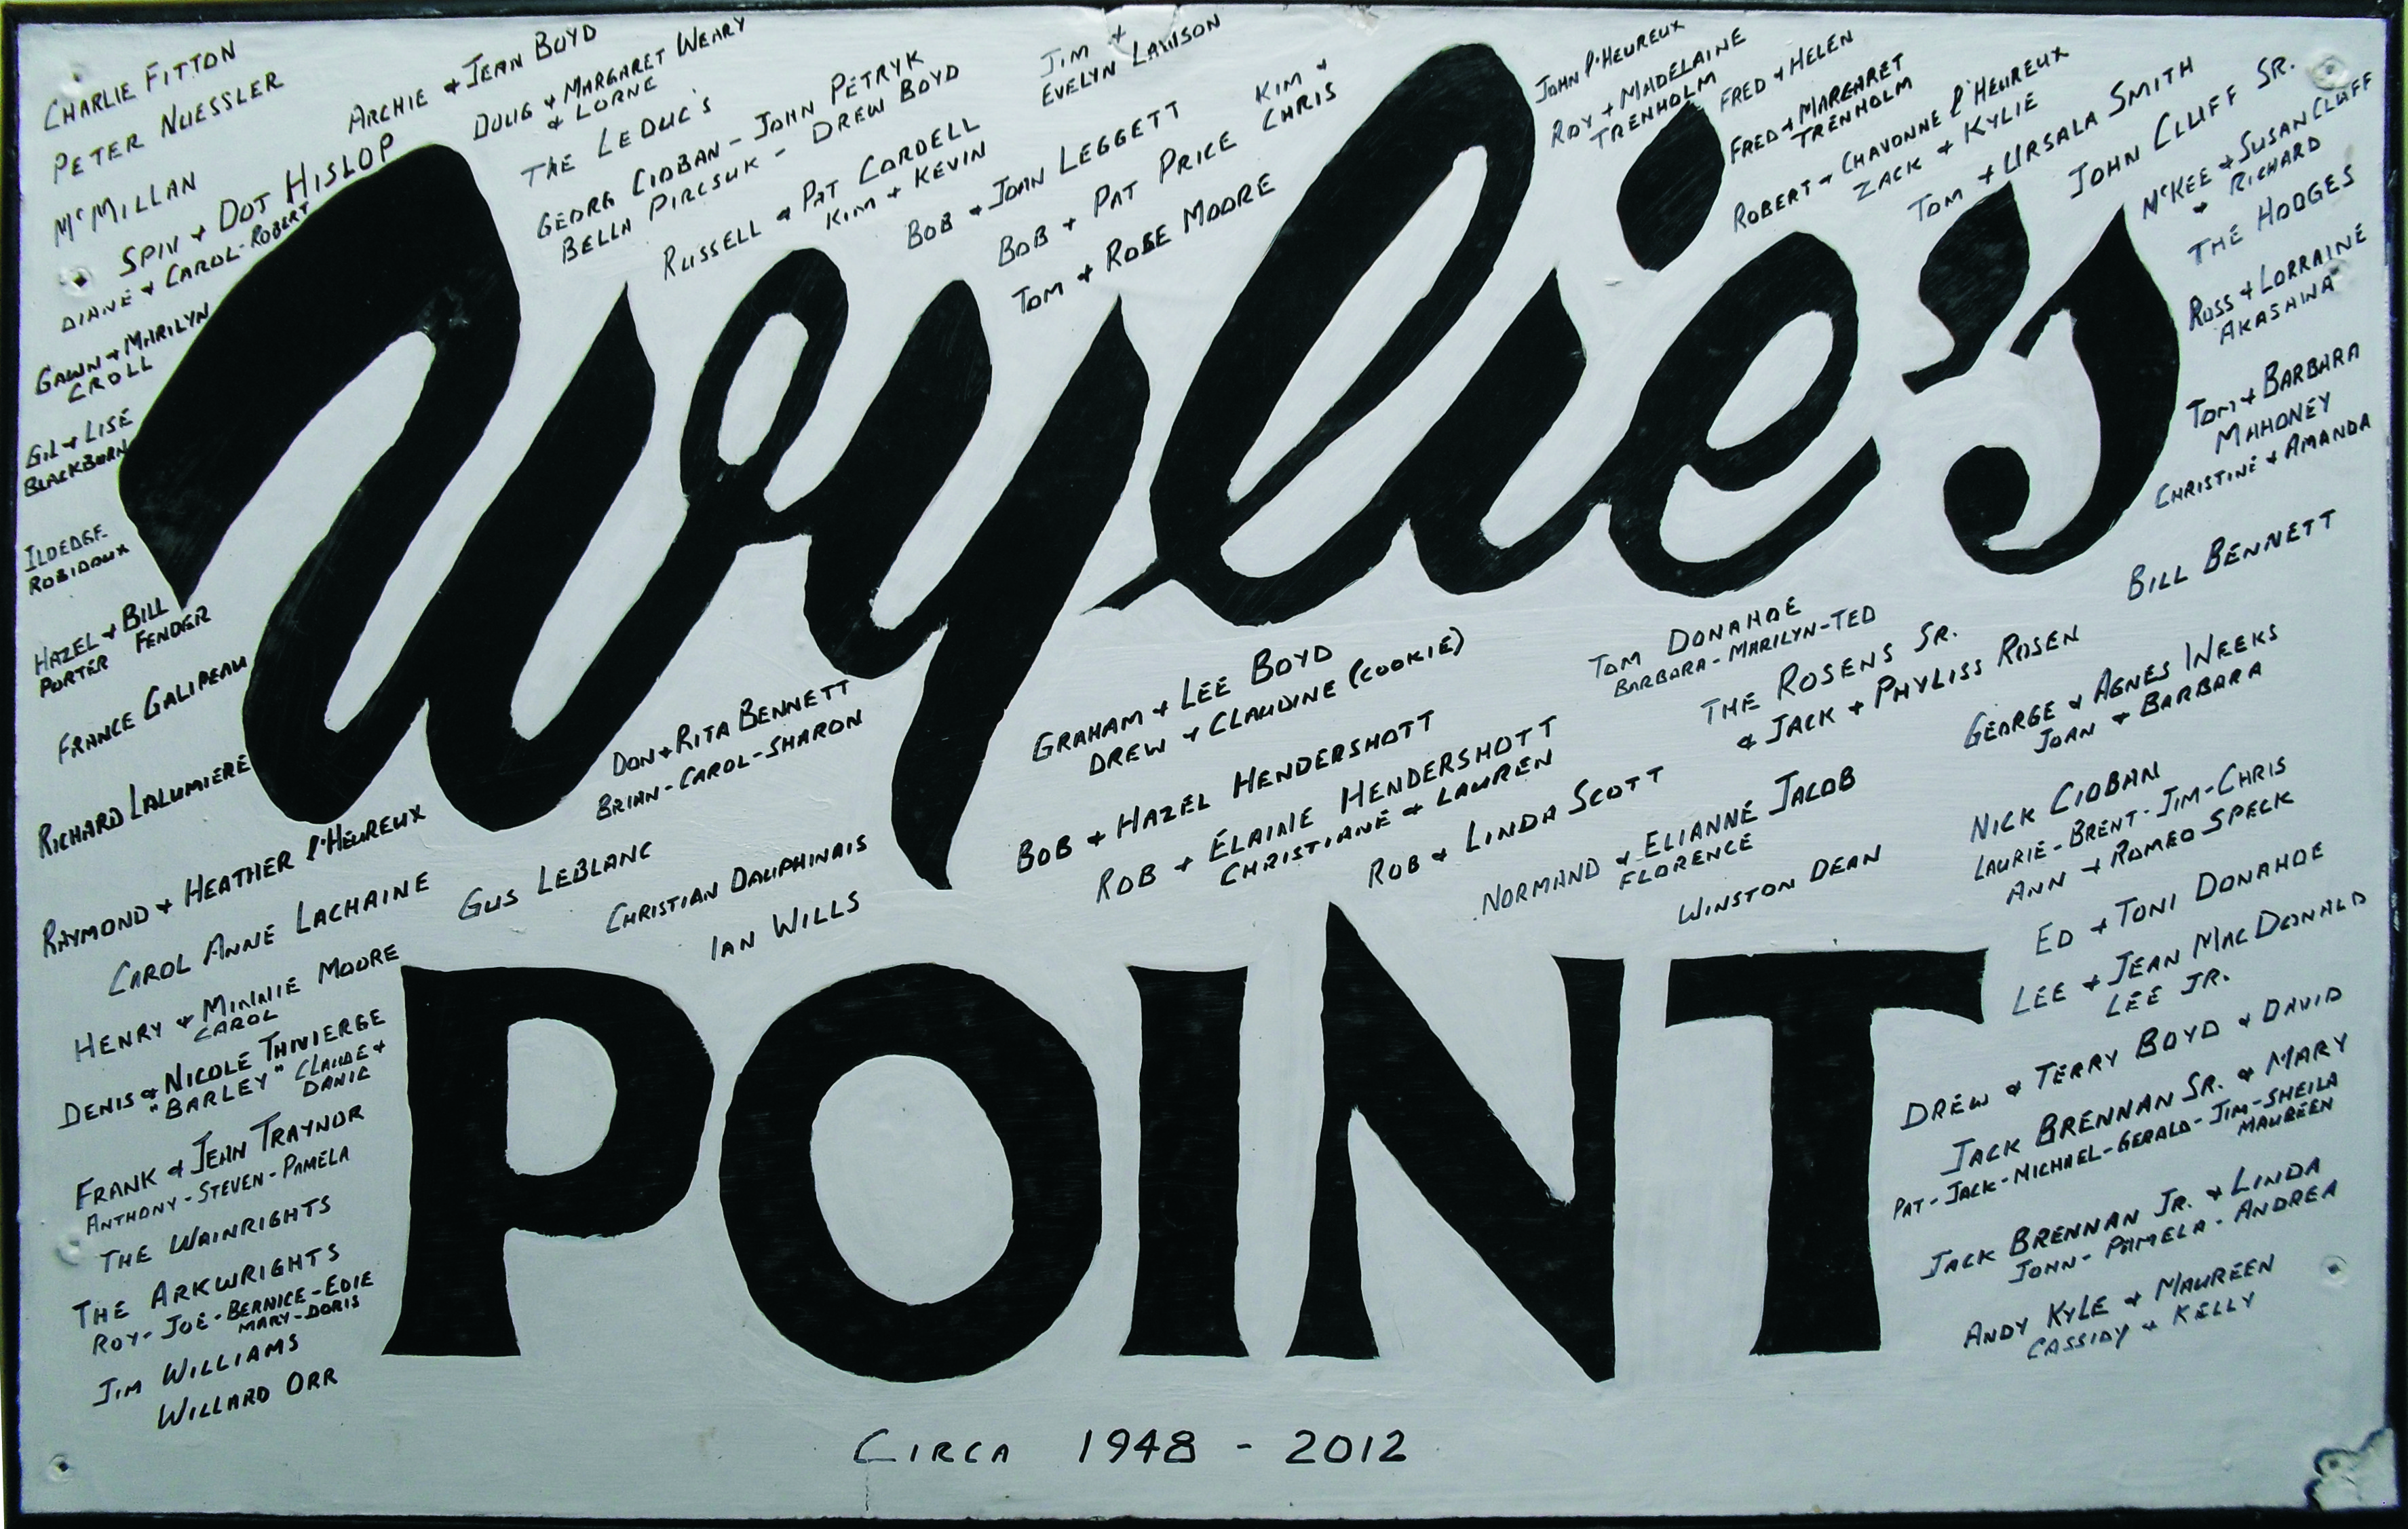 CHARLIE FITTON
PETER NUESSLER
McMILLAN
SPIN & DOT HISLOP
DIANE & CAROL-ROBERT
GAWN & MARILYN
CROLL
GIL & LISE
BLACKBURN
ROBIDOUX
HAZEL & BILL
PORTER FENDER
FRANCE GALIPEAU
RICHARD LALUMIERE
RAYMOND & HEATHER l'HEUREUX
CAROL ANNE LACHAINE
HENRY & MINNIE MOORE
CAROL
DENIS & NICOLE THIVIERGE
"BARLEY" CLAUDE &
DANIC
FRANK & JEAN TRAYNOR
ANTHONY - STEVEN - PAMELA
THE WAINRIGHTS
THE ARKWRIGHTS
ROY - JOE - BERNICE - EDIE
MARY - DORIS
JIM WILLIAMS
WILLARD ORR
ARCHIE & JEAN BOYD
DOUG & MARGARET WEARY
& LORNE
THE LEDUC'S
GEORG CIOBAN - JOHN PETRYK
BELLA PIRCSUK - DREW BOYD
RUSSELL & PAT CORDELL
KIM & KEVIN
JIM &
EVELYN LAWSON
BOB & JOAN LEGGETT
BOB & PAT PRICE
KIM &
CHRIS
TOM & ROSE MOORE
JOHN l'HEUREUX
ROY & MADELAINE
TRENHOLM
FRED & HELEN
FRED & MARGARET
TRENHOLM
ROBERT & CHAVONNE l'HEUREUX
ZACK & KYLIE
TOM & URSALA SMITH
JOHN CLUFF SR.
McKEE & SUSAN CLUFF
& RICHARD
THE HODGES
ROSS & LORRAINE
AKASHINA
TOM & BARBARA
MAHONEY
CHRISTINE & AMANDA
BILL BENNETT
Wylie's
DON & RITA BENNETT
BRIAN - CAROL - SHARON
GUS LEBLANC
CHRISTIAN DAUPHINAIS
IAN WILLS
GRAHAM & LEE BOYD
DREW & CLAUDINE (COOKIE)
BOB & HAZEL HENDERSHOTT
ROB & ELAINE HENDERSHOTT
CHRISTIANE & LAUREN
ROB & LINDA SCOTT
TOM DONAHOE
BARBARA - MARILYN - TED
THE ROSENS SR.
& JACK & PHYLISS ROSEN
NORMAND & ELIANNE JACOB
FLORENCE
WINSTON DEAN
GEORGE & AGNES WEEKS
JOAN & BARBARA
NICK CIOBAN
LAURIE - BRENT - JIM - CHRIS
ANN & ROMEO SPECK
ED & TONI DONAHOE
LEE & JEAN MACDONALD
LEE JR.
DREW & TERRY BOYD & DAVID
JACK BRENNAN SR. & MARY
PAT - JACK - MICHAEL - GERALD - JIM - SHEILA
MAUREEN
JACK BRENNAN JR. & LINDA
JOHN - PAMELA - ANDREA
ANDY KYLE & MAUREEN
CASSIDY & KELLY
POINT
CIRCA 1948 - 2012